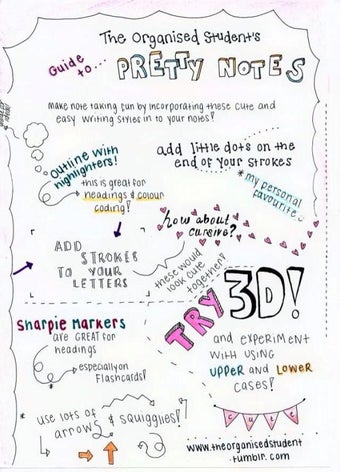 The Organised Student's
Guide to...
PRETTY NOTES
make note taking fun by incorporating these cute and
easy writing styles in to your notes!
Outline with
highlighters!
this is great for
headings & colour
coding!
add little dots on the
end of your strokes
* my personal
favourite
how about
cursive?
ADD
STROKES
TO YOUR
LETTERS
these would
look cute
together!
TRY 3D!
Sharpie Markers
are GREAT for
headings
especially on
Flashcards!
and EXPERIMENT
WITH USING
UPPER and LOWER
CASES!
* use lots of
arrows & squiggles!
cute
www.theorganisedstudent
.tumblr.com